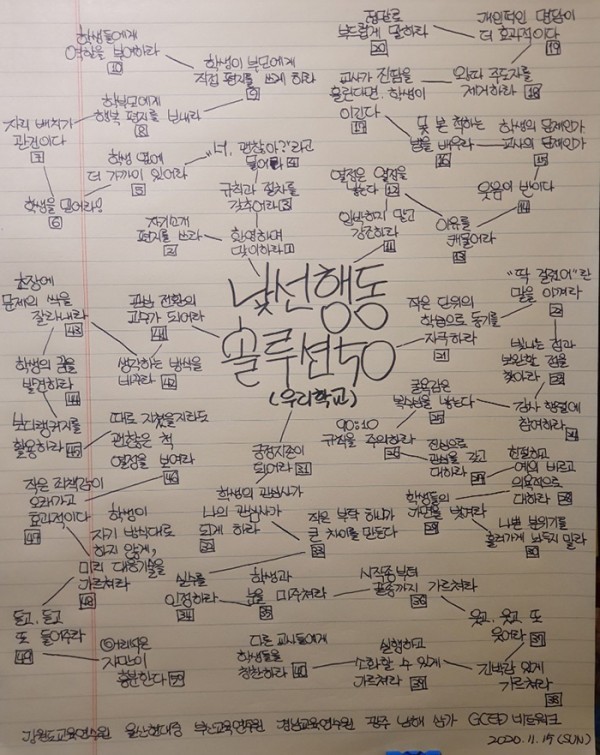 학생들에게
역할을 부여하라
10
학생이 부모에게
직접 편지를 쓰게 하라
9
정답로
부드럽게 말하라
20
개인적인 면담이
더 효과적이다
19
자리 배치가
관건이다
7
학부모에게
행복 편지를 보내라
8
교사가 진땀을
흘린다면, 학생이
이긴다
17
왕따 주도자를
제거하라 18
학생 옆에
더 가까이 있어라
5
"너, 괜찮아?"라고
물어라 4
못 본 척하는
법을 배우라
16
학생의 문제인가
교사의 문제인가
15
학생을 믿어라!
6
규칙과 절차를
갖추어라 3
열정은 열정을
낳는다 12
웃음이 반이다
14
자기소개
편지를 쓰라
2
환영하며
맞이하라 1
일반화하지 말고
강조하라
11
이유를
캐물어라
13
낯선행동
솔루션50
(우리학교)
초장에
문제의 싹을
잘라내라
43
관심 전환의
고수가 되어라
41
작은 단위의
학습으로 동기를
자극하라
21
"딱 걸렸어"란
말을 아껴라
22
학생의 꿈을
발견하라
44
생각하는 방식을
바꾸라 42
빛나는 점과
보완할 점을
찾아라 23
보디랭귀지를
활용하라 45
때로 지쳤을지라도
괜찮은 척
열정을 보여라
46
굴욕감은
복수심을 낳는다
25
감사 행렬에
참여하라
24
90:10
규칙을 주의하라
26
긍정지존이
되어라 31
진심으로
관심을 갖고
대하라 27
친절하고
예의 바르고
의욕적으로
대하라 28
작은 죄책감이
오래가고
효과적이다
47
학생이
자기 방식대로
하지 않게,
미리 대응기술을
가르쳐라
48
학생의 관심사가
나의 관심사가
되게 하라
32
작은 부탁 하나가
큰 차이를 만든다
33
학생들의
가면을 벗겨라
29
나쁜 분위기를
흘러가게 놔두지 말라
30
실수를
인정하라
34
학생과
눈을 마주쳐라
35
시작종부터
끝종까지 가르쳐라
36
듣고, 듣고
또 들어주라
49
어려움은
지금만이
충분한다 50
다른 교사들에게
학생들을
칭찬하라 40
실행하고
소화할 수 있게
가르쳐라 39
웃고, 웃고 또
웃어라 37
긴박감 있게
가르쳐라
38
강원도교육연수원 울산현대중 부산교육연수원 경남교육연수원 광주 남해 상가 GCED 네트워크
2020.11.15(SUN)